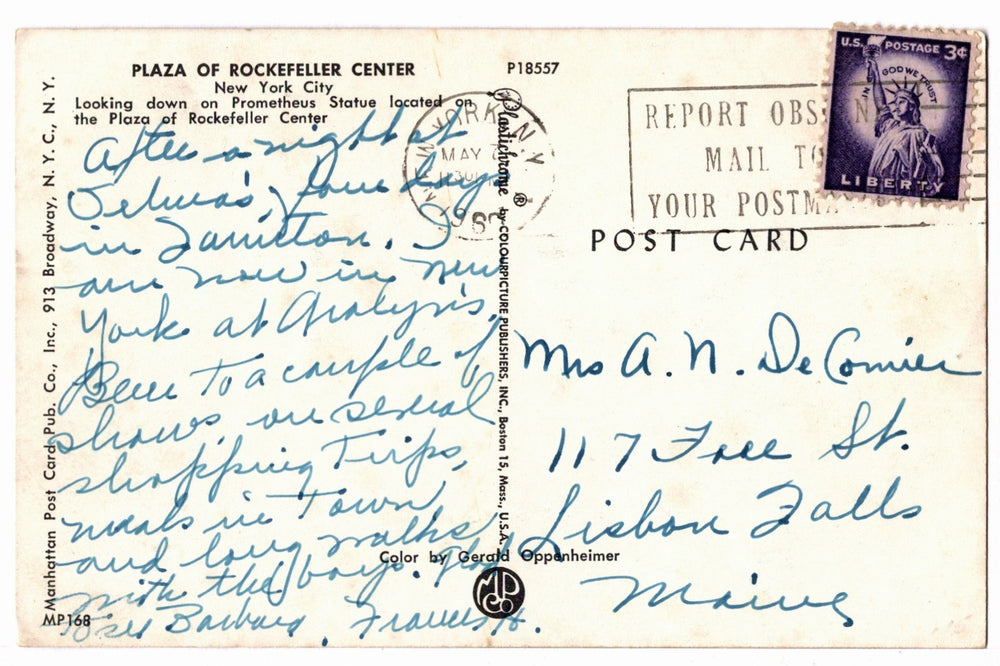 PLAZA OF ROCKEFELLER CENTER
New York City
Looking down on Prometheus Statue located on
the Plaza of Rockefeller Center
P18557
After a night at
Velma's, four days
in . I
am now in New
York at
Been to a couple of
shows, on several
shopping Trips,
meals in Town
and long walks
with the boys. Glad
to see Barbara. Frances H.
Manhattan Post Card Pub. Co., Inc., 913 Broadway, N. Y. C., N. Y.
MP168
Plastichrome ® by COLOURPICTURE PUBLISHERS, INC., Boston 15, Mass., U.S.A.
Color by Gerald Oppenheimer
MP Co
N.Y.
MAY
REPORT OBS
MAIL TO
YOUR POSTMA
U.S. POSTAGE 3¢
IN GOD WE TRUST
LIBERTY
POST CARD
Mrs A. N. DeComier
117 Free St.
Lisbon Falls
Maine